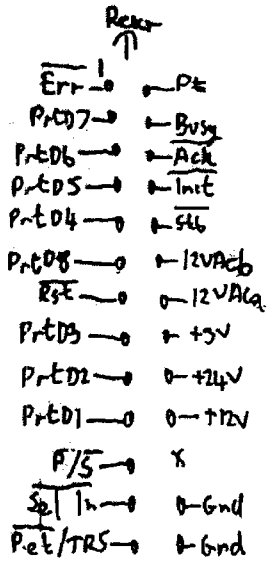 Rear
1
Err Pt
PrtD7 Busy
PrtD6 Ack
PrtD5 Init
PrtD4 Stb
PrtD8 12VAcb
Rst 12VAca
PrtD3 +5V
PrtD2 +24V
PrtD1 +12V
P/S x
Spl In Gnd
Pet/TRS Gnd